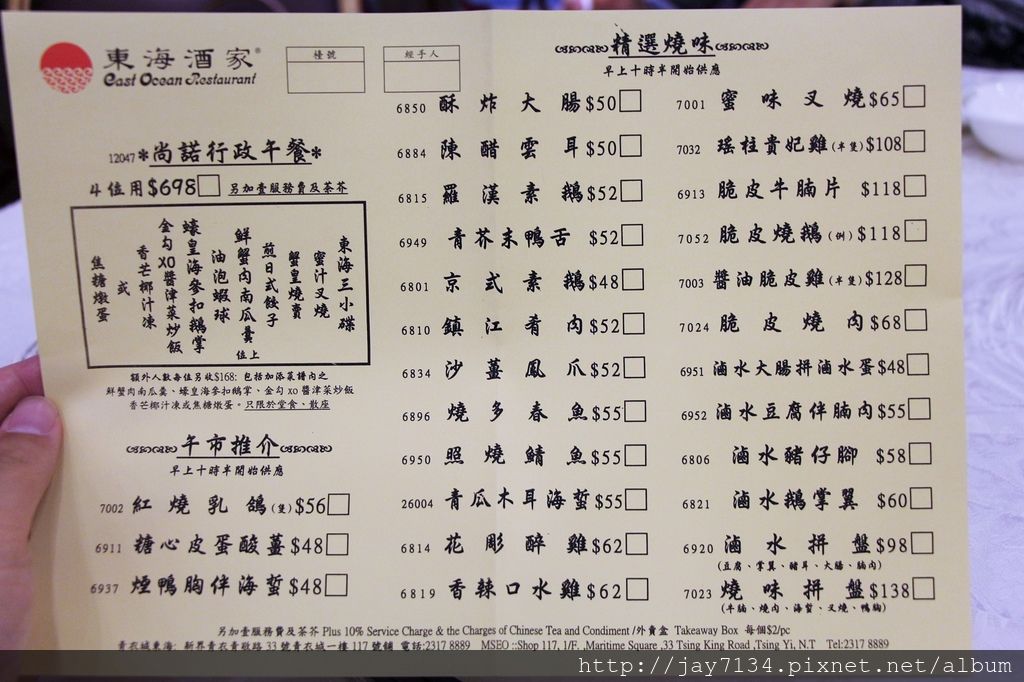 東海酒家®
East Ocean Restaurant
檯號
經手人
12047 *尚諾行政午餐*
4位用$698 另加壹服務費及茶芥
東海三小碟
蜜汁叉燒
蟹皇燒賣
煎日式餃子
鮮蟹肉南瓜羹 位上
油泡蝦球
蠔皇海參扣鵝掌
金勾XO醬津菜炒飯
香芒椰汁凍
或
焦糖燉蛋
額外人數每位另收$168: 包括加添菜譜內之
鮮蟹肉南瓜羹、蠔皇海參扣鵝掌、金勾xo醬津菜炒飯
香芒椰汁凍或焦糖燉蛋。只限於堂食、散座
午市推介
早上十時半開始供應
7002 紅燒乳鴿(隻)$56
6911 糖心皮蛋酸薑$48
6937 煙鴨胸伴海蜇$48
6850 酥炸大腸$50
6884 陳醋雲耳$50
6815 羅漢素鵝$52
6949 青芥末鴨舌$52
6801 京式素鵝$48
6810 鎮江肴肉$52
6834 沙薑鳳爪$52
6896 燒多春魚$55
6950 照燒鯖魚$55
26004 青瓜木耳海蜇$55
6814 花彫醉雞$62
6819 香辣口水雞$62
精選燒味
早上十時半開始供應
7001 蜜味叉燒$65
7032 瑤柱貴妃雞(半隻)$108
6913 脆皮牛腩片 $118
7052 脆皮燒鵝(例)$118
7003 醬油脆皮雞(半隻)$128
7024 脆皮燒肉$68
6951 滷水大腸拼滷水蛋$48
6952 滷水豆腐伴腩肉$55
6806 滷水豬仔腳 $58
6821 滷水鵝掌翼 $60
6920 滷水拼盤$98
(豆腐、掌翼、豬耳、大腸、腩肉)
7023 燒味拼盤$138
(牛腩、燒肉、海蜇、叉燒、鴨胸)
另加壹服務費及茶芥 Plus 10% Service Charge & the Charges of Chinese Tea and Condiment /外賣盒 Takeaway Box 每個$2/pc
青衣城東海: 新界青衣青敬路33號青衣城一樓117號舖 電話:2317 8889 MSEO ::Shop 117, 1/F. ,Maritime Square ,33 Tsing King Road ,Tsing Yi, N.T Tel:2317 8889
http://jay7134.pixnet.net/album